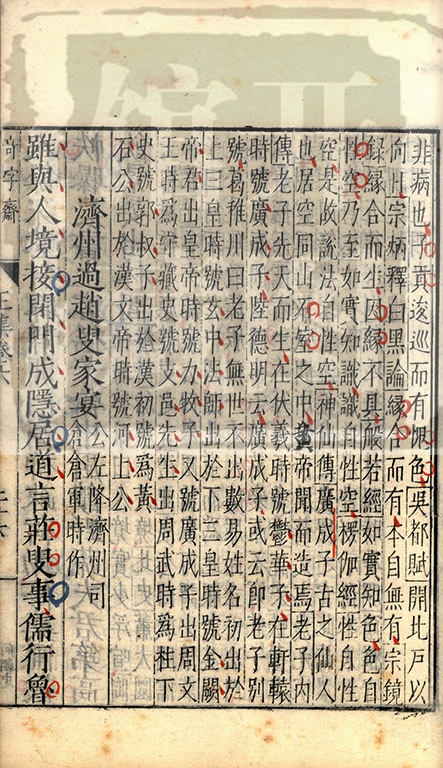 非病也子貢逡巡而有愧色吳都賦開北戶以
向日宗炳釋白黑論緣合而有本自無有宗鏡
録緣合而生因緣不具般若經如實知色色自
性空乃至如實知識識自性空楞伽經自性自
空是故説法自性空神仙傳廣成子古之仙人
也居空同山石室之中黃帝聞而造焉老子内
傳老子先天而生在伏羲時號鬱華子在軒轅
時號廣成子陸德明云廣成子或云即老子别
號葛稚川曰老子無世不出數易姓名初出於
上三皇時號玄中法師出於下三皇時號金闕
帝君出皇帝時號力牧子又號廣成子出周文
王時爲守藏史號支邑先生出周武時爲柱下
史號郭叔子出於漢初號爲黃
石公出於漢文帝時號河上公
濟州過趙叟家宴公左降濟州司
倉倉軍時作
雖與人境接閉門成隱居道言莊叟事儒行魯
奇字齋